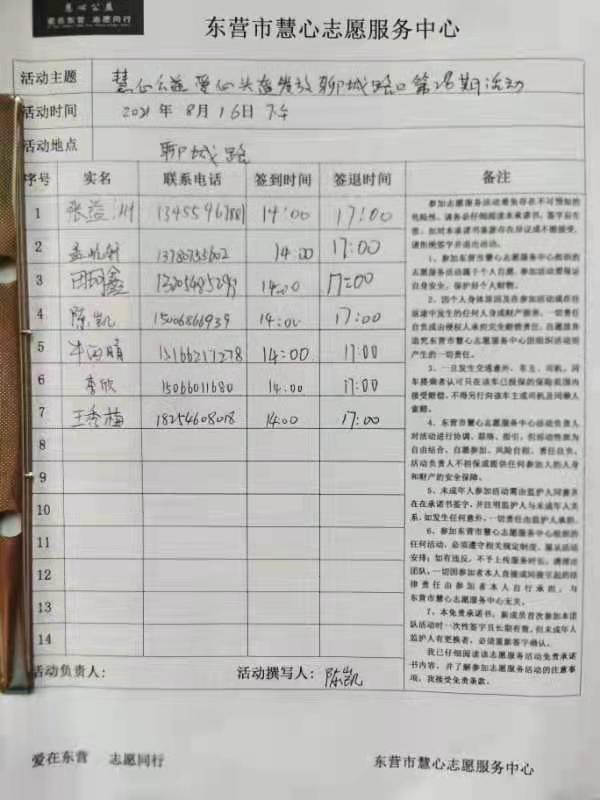 慧心公益
爱在东营 志愿同行
东营市慧心志愿服务中心
活动主题 慧心公益爱心头盔发放聊城路口第28期活动
活动时间 2021年8月16日下午
活动地点 聊城路
序号 实名 联系电话 签到时间 签退时间 备注
1 张益州 14:00 17:00
2 13780755602 14:00 17:00
3 14:00 17:00
4 陈凯 1506866939 14:00 17:00
5 15166217278 14:00 17:00
6 李欣 15066011680 14:00 17:00
7 王秀梅 18254608018 14:00 17:00
8
9
10
11
12
13
14
参加志愿服务活动难免存在不可预知的
危险性，请务必仔细阅读本承诺书，签字后有
效。如对本承诺书条款存在异议或不能接受，
请拒绝签字并退出活动。
1、参加东营市慧心志愿服务中心组织的
志愿服务活动属于个人自愿，参加活动要保证
自身安全，保护好个人财物。
2、因个人身体原因及在参加活动或在往
返途中发生的任何人身或财产损害，一切责任
自负或由侵权人承担安全赔偿责任，自愿放弃
追究东营市慧心志愿服务中心因组织活动而
产生的一切责任。
3、一旦发生交通意外，车主、司机、同
车搭乘者认可只在该车已投保的保险范围内
接受赔偿，不得另行向该车主或司机及同乘人
索赔。
4、东营市慧心志愿服务中心活动负责人
对活动进行协调、联络、指引，但活动性质为
自由结合、自愿参加、风险自担、责任自负，
活动负责人不担保或提供任何参加人的人身
和财产的安全保障。
5、未成年人参加活动需由监护人同意并
在在承诺书签字，并注明监护人与未成年人关
系，如发生任何意外，一切责任由监护人承担。
6、参加东营市慧心志愿服务中心组织的
任何活动，必须遵守相关规定制度，服从活动
安排；如有违反，不予上传服务时长，清理出
团队，一切因参加者本人直接或间接引起的法
律责任由参加者本人自行承担，与
东营市慧心志愿服务中心无关。
7、本免责承诺书，新成员首次参加本团
队活动时一次性签字且长期有效，但未成年人
监护人有更换者，必须重新签字确认。
我已仔细阅读该志愿服务活动免责承诺
书内容，并了解参加志愿服务活动的注意事
项，我接受免责条款。
活动负责人： 活动撰写人：陈凯
爱在东营 志愿同行 东营市慧心志愿服务中心